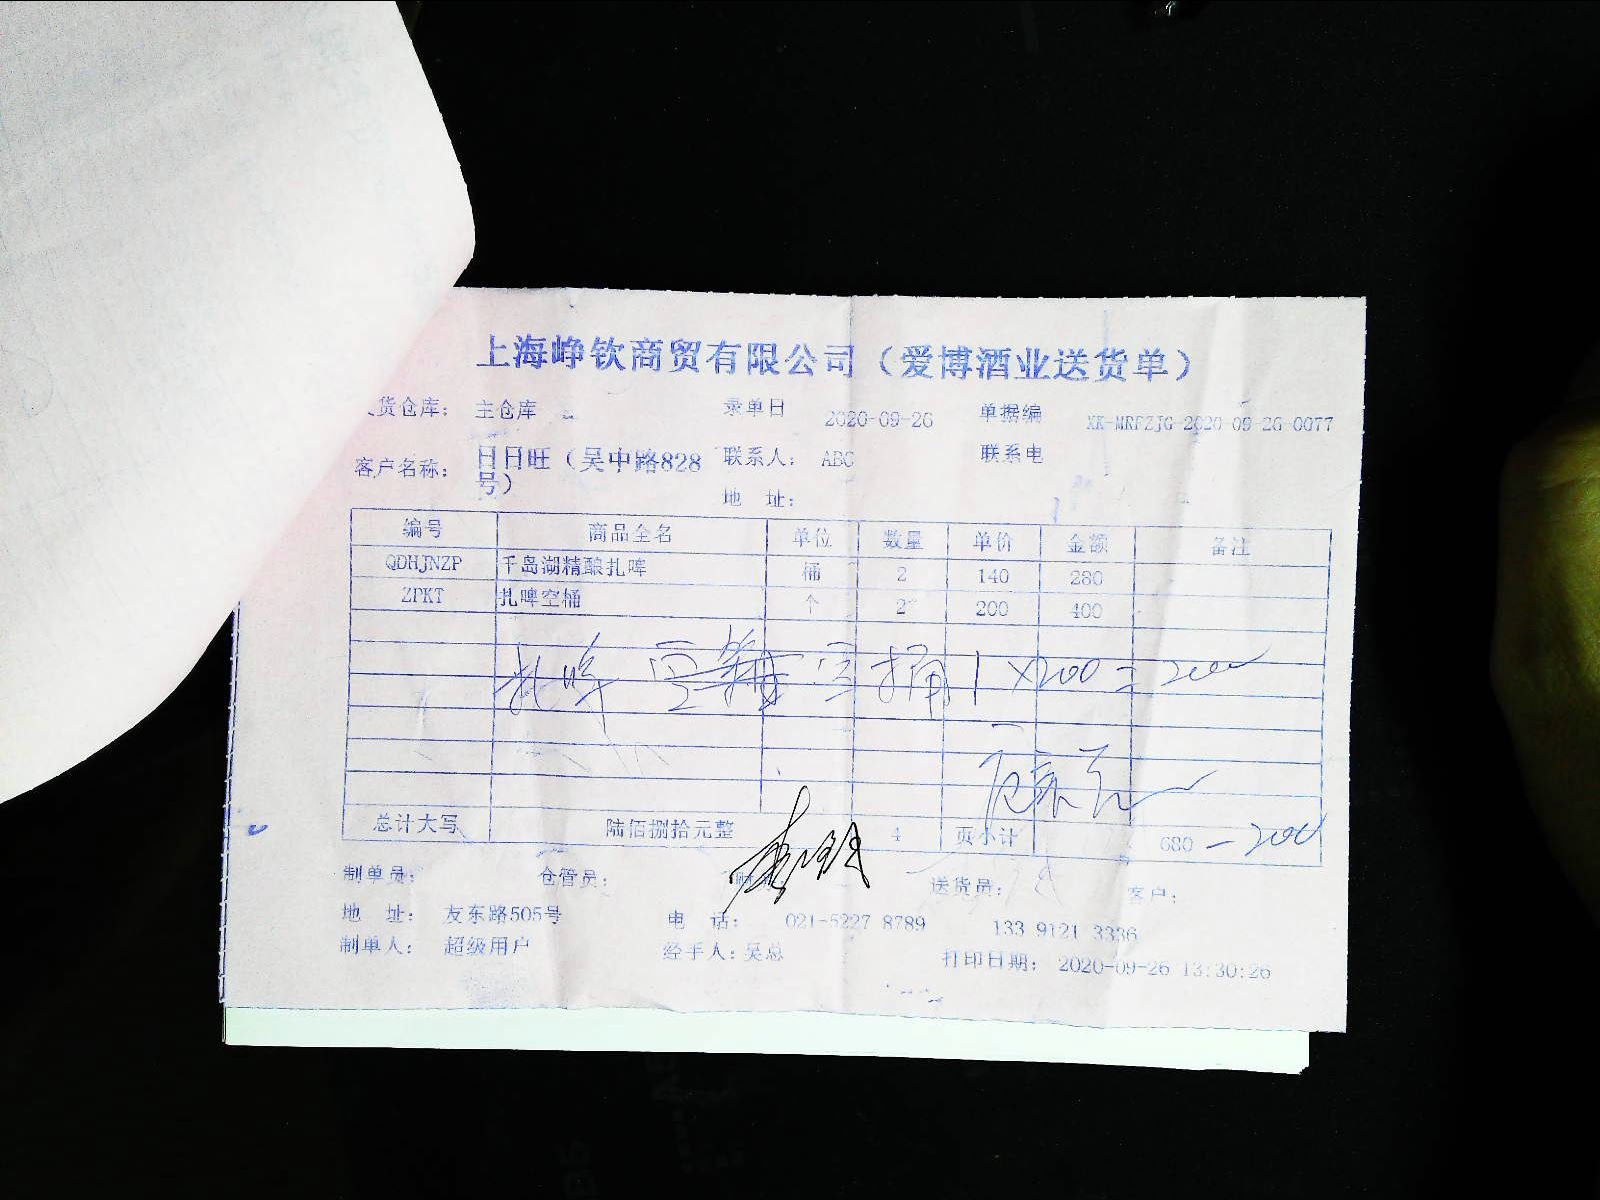 上海峥钦商贸有限公司（爱博酒业送货单）
货仓库： 主仓库 录单日 2020-09-26 单据编 XK-MRPZJG-2020-09-26-0077
客户名称： 日日旺（吴中路828号） 联系人： ABC 联系电
地 址：
编号 商品全名 单位 数量 单价 金额 备注
QDHJNZP 千岛湖精酿扎啤 桶 2 140 280
ZPKT 扎啤空桶 个 2 200 400
扎啤 空 桶 1 ×200 = 200
总计大写 陆佰捌拾元整 4 页小计 680 - 200
制单员： 仓管员： 送货员： 客户：
地 址： 友东路505号 电 话： 021-5227 8789 133 9121 3336
制单人： 超级用户 经手人：吴总 打印日期： 2020-09-26 13:30:26